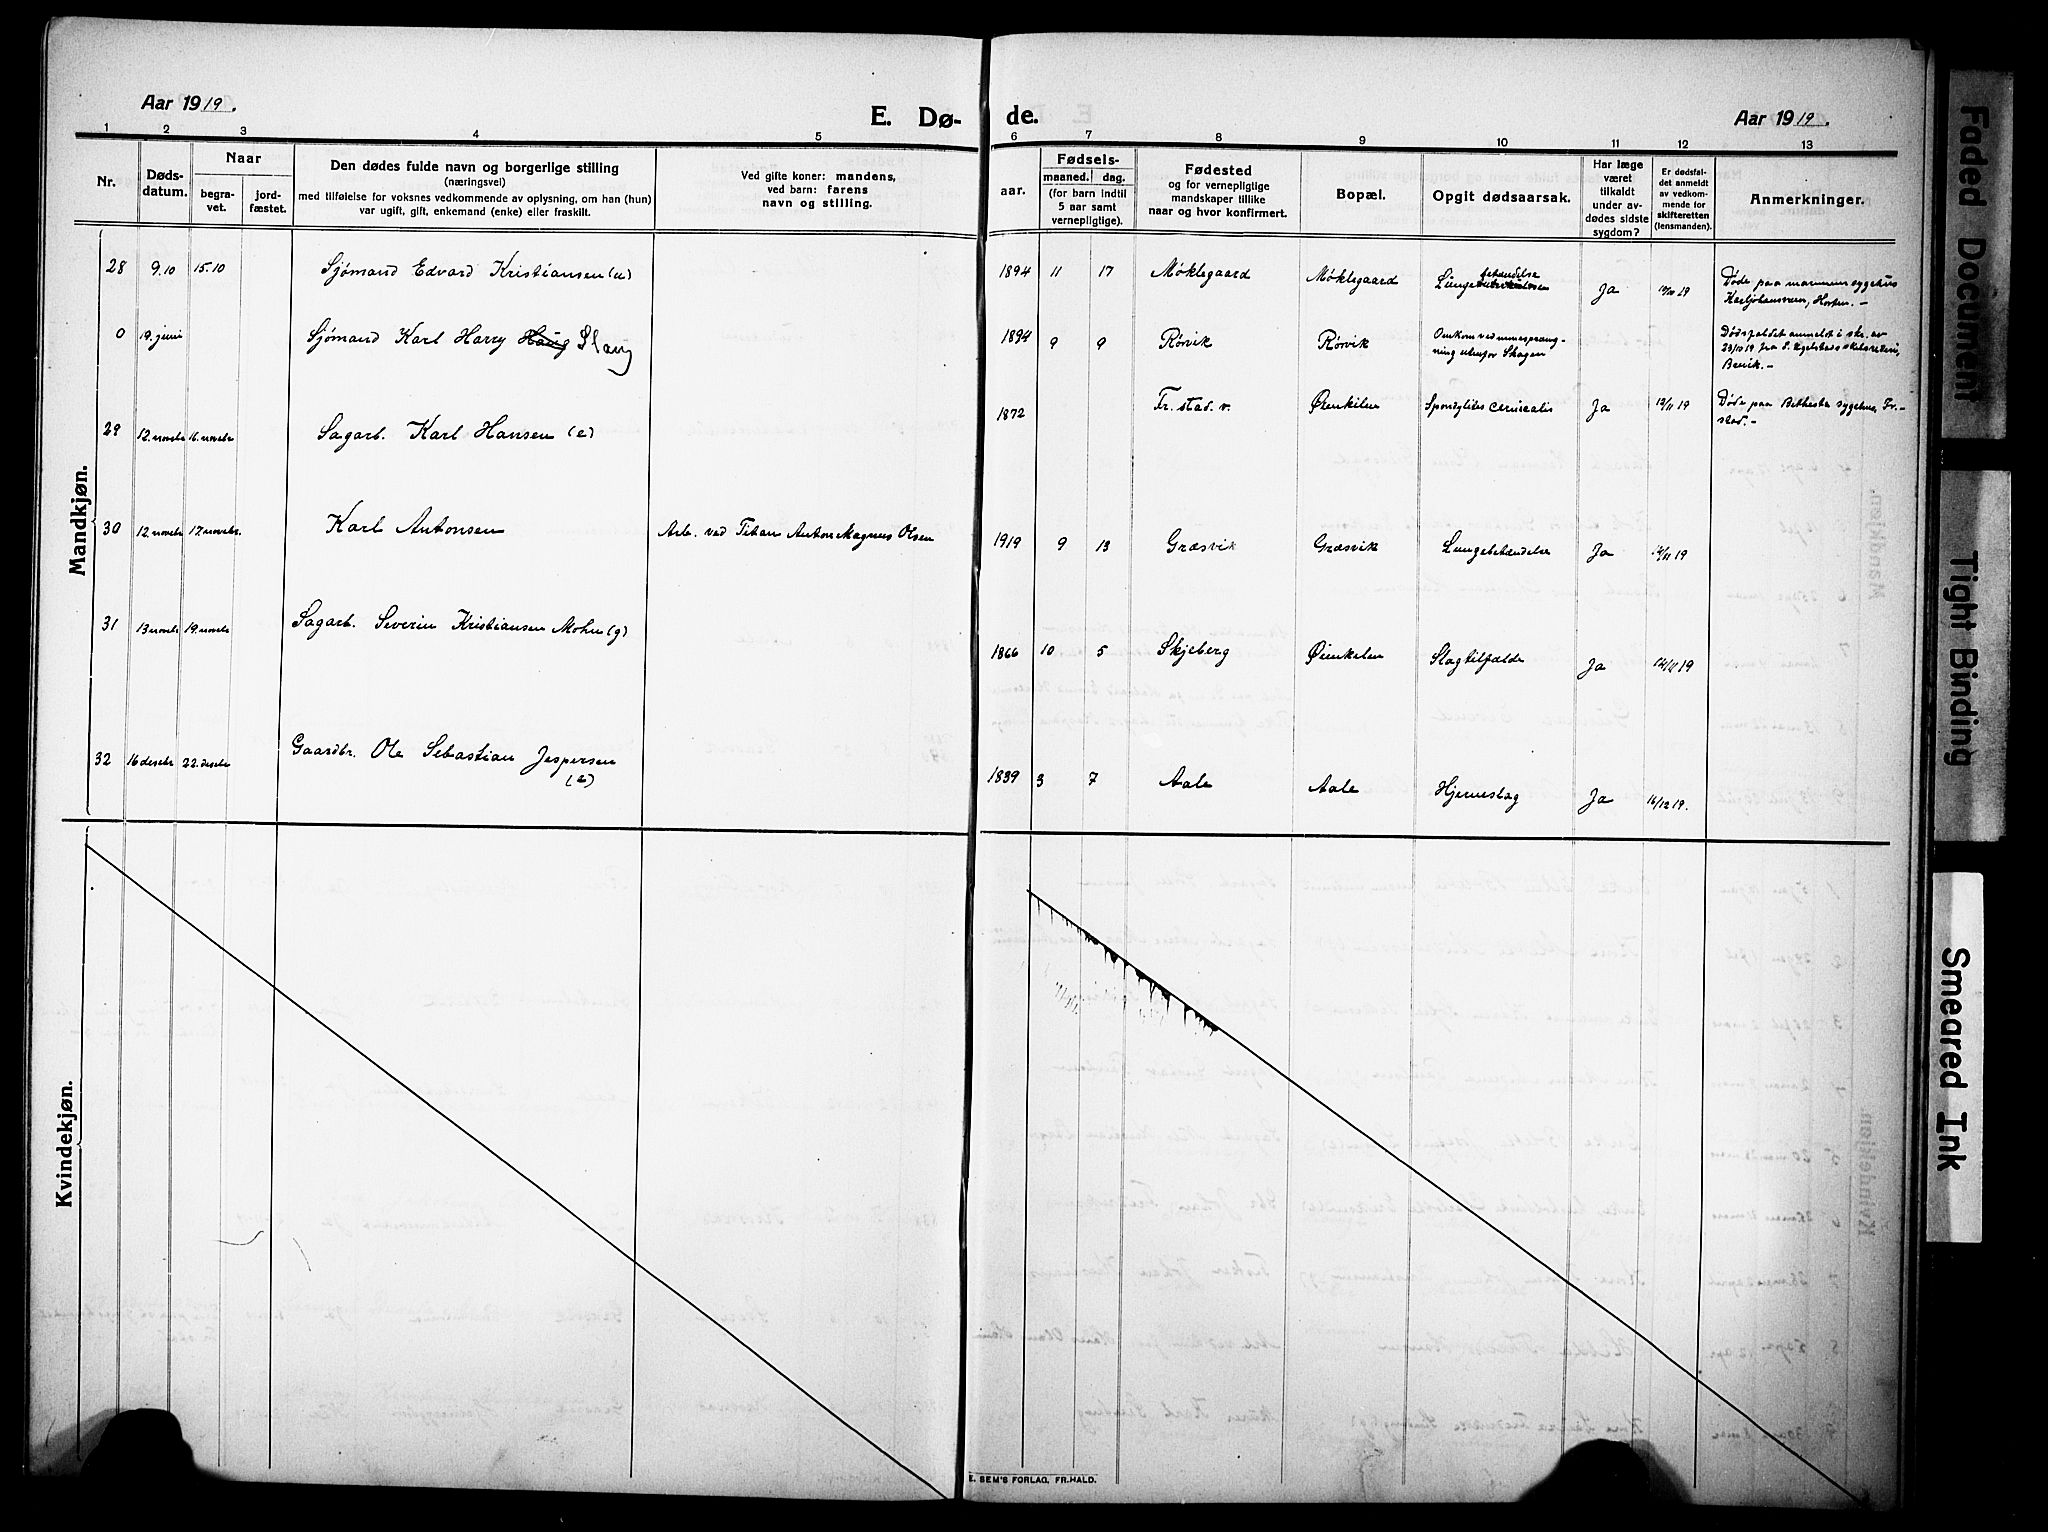 Aar 1919.
E. Dø- de.
Aar 1919.
1 2 3 4 5 6 7 8 9 10 11 12 13
Nr.
Døds-
datum.
Naar
begra-
vet.
jord-
fæstet.
Den dødes fulde navn og borgerlige stilling
(næringsvei)
med tilføielse for voksnes vedkommende av oplysning, om han (hun)
var ugift, gift, enkemand (enke) eller fraskilt.
Ved gifte koner: mandens,
ved barn: farens
navn og stilling.
aar.
Fødsels-
maaned. dag.
(for barn indtil
5 aar samt
vernepligtige).
Fødested
og for vernepligtige
mandskaper tillike
naar og hvor konfirmert.
Bopæl.
Opgit dødsaarsak.
Har læge
været
tilkaldt
under av-
dødes sidste
sygdom?
Er dødsfal-
det anmeldt
av vedkom-
mende for
skifteretten
(lensmanden).
Anmerkninger.
Mandkjøn.
28 9.10 15.10 Sjømand Edvard Kristiansen (u) 1894 11 17 Møklegaard Møklegaard Lungebetændelse Ja 19
Døde paa marinens sygehus
Karljohansvern, Horten.-
0 19. juni Sjømand Karl Harry Haug Slang 1894 9 9 Rørvik Rørvik
Omkom ved minespræng-
ning utenfor Skagen
Dødsfaldet anmeldt i skr. av
23/10 19 fra
29 12. novbr 16. novbr Sagarb. Karl Hansen (e) 1872 Fr.stad. v. Øienkilen Spondylites cervicalis Ja 12/11 19
Døde paa Bethesda sygehus, Fr.-
stad.-
30 12. novbr 17. novbr. Karl Antonsen Arb. ved Titan Anton Magnus Olsen 1919 9 13 Græsvik Græsvik Lungebetændelse Ja 14/11 19
31 13 novbr 19. novbr Sagarb. Severin Kristiansen Mohn (g) 1866 10 5 Skjeberg Øienkilen Slagtilfælde Ja 14/11 19
32 16 desebr 22. desebr Gaardbr. Ole Sebastian Jespersen
(e) 1839 3 7 Aale Aale Hjerneslag Ja 16/12 19.
Kvindekjøn.
E. SEM'S FORLAG, FR.HALD.
Faded Document
Tight Binding
Smeared Ink